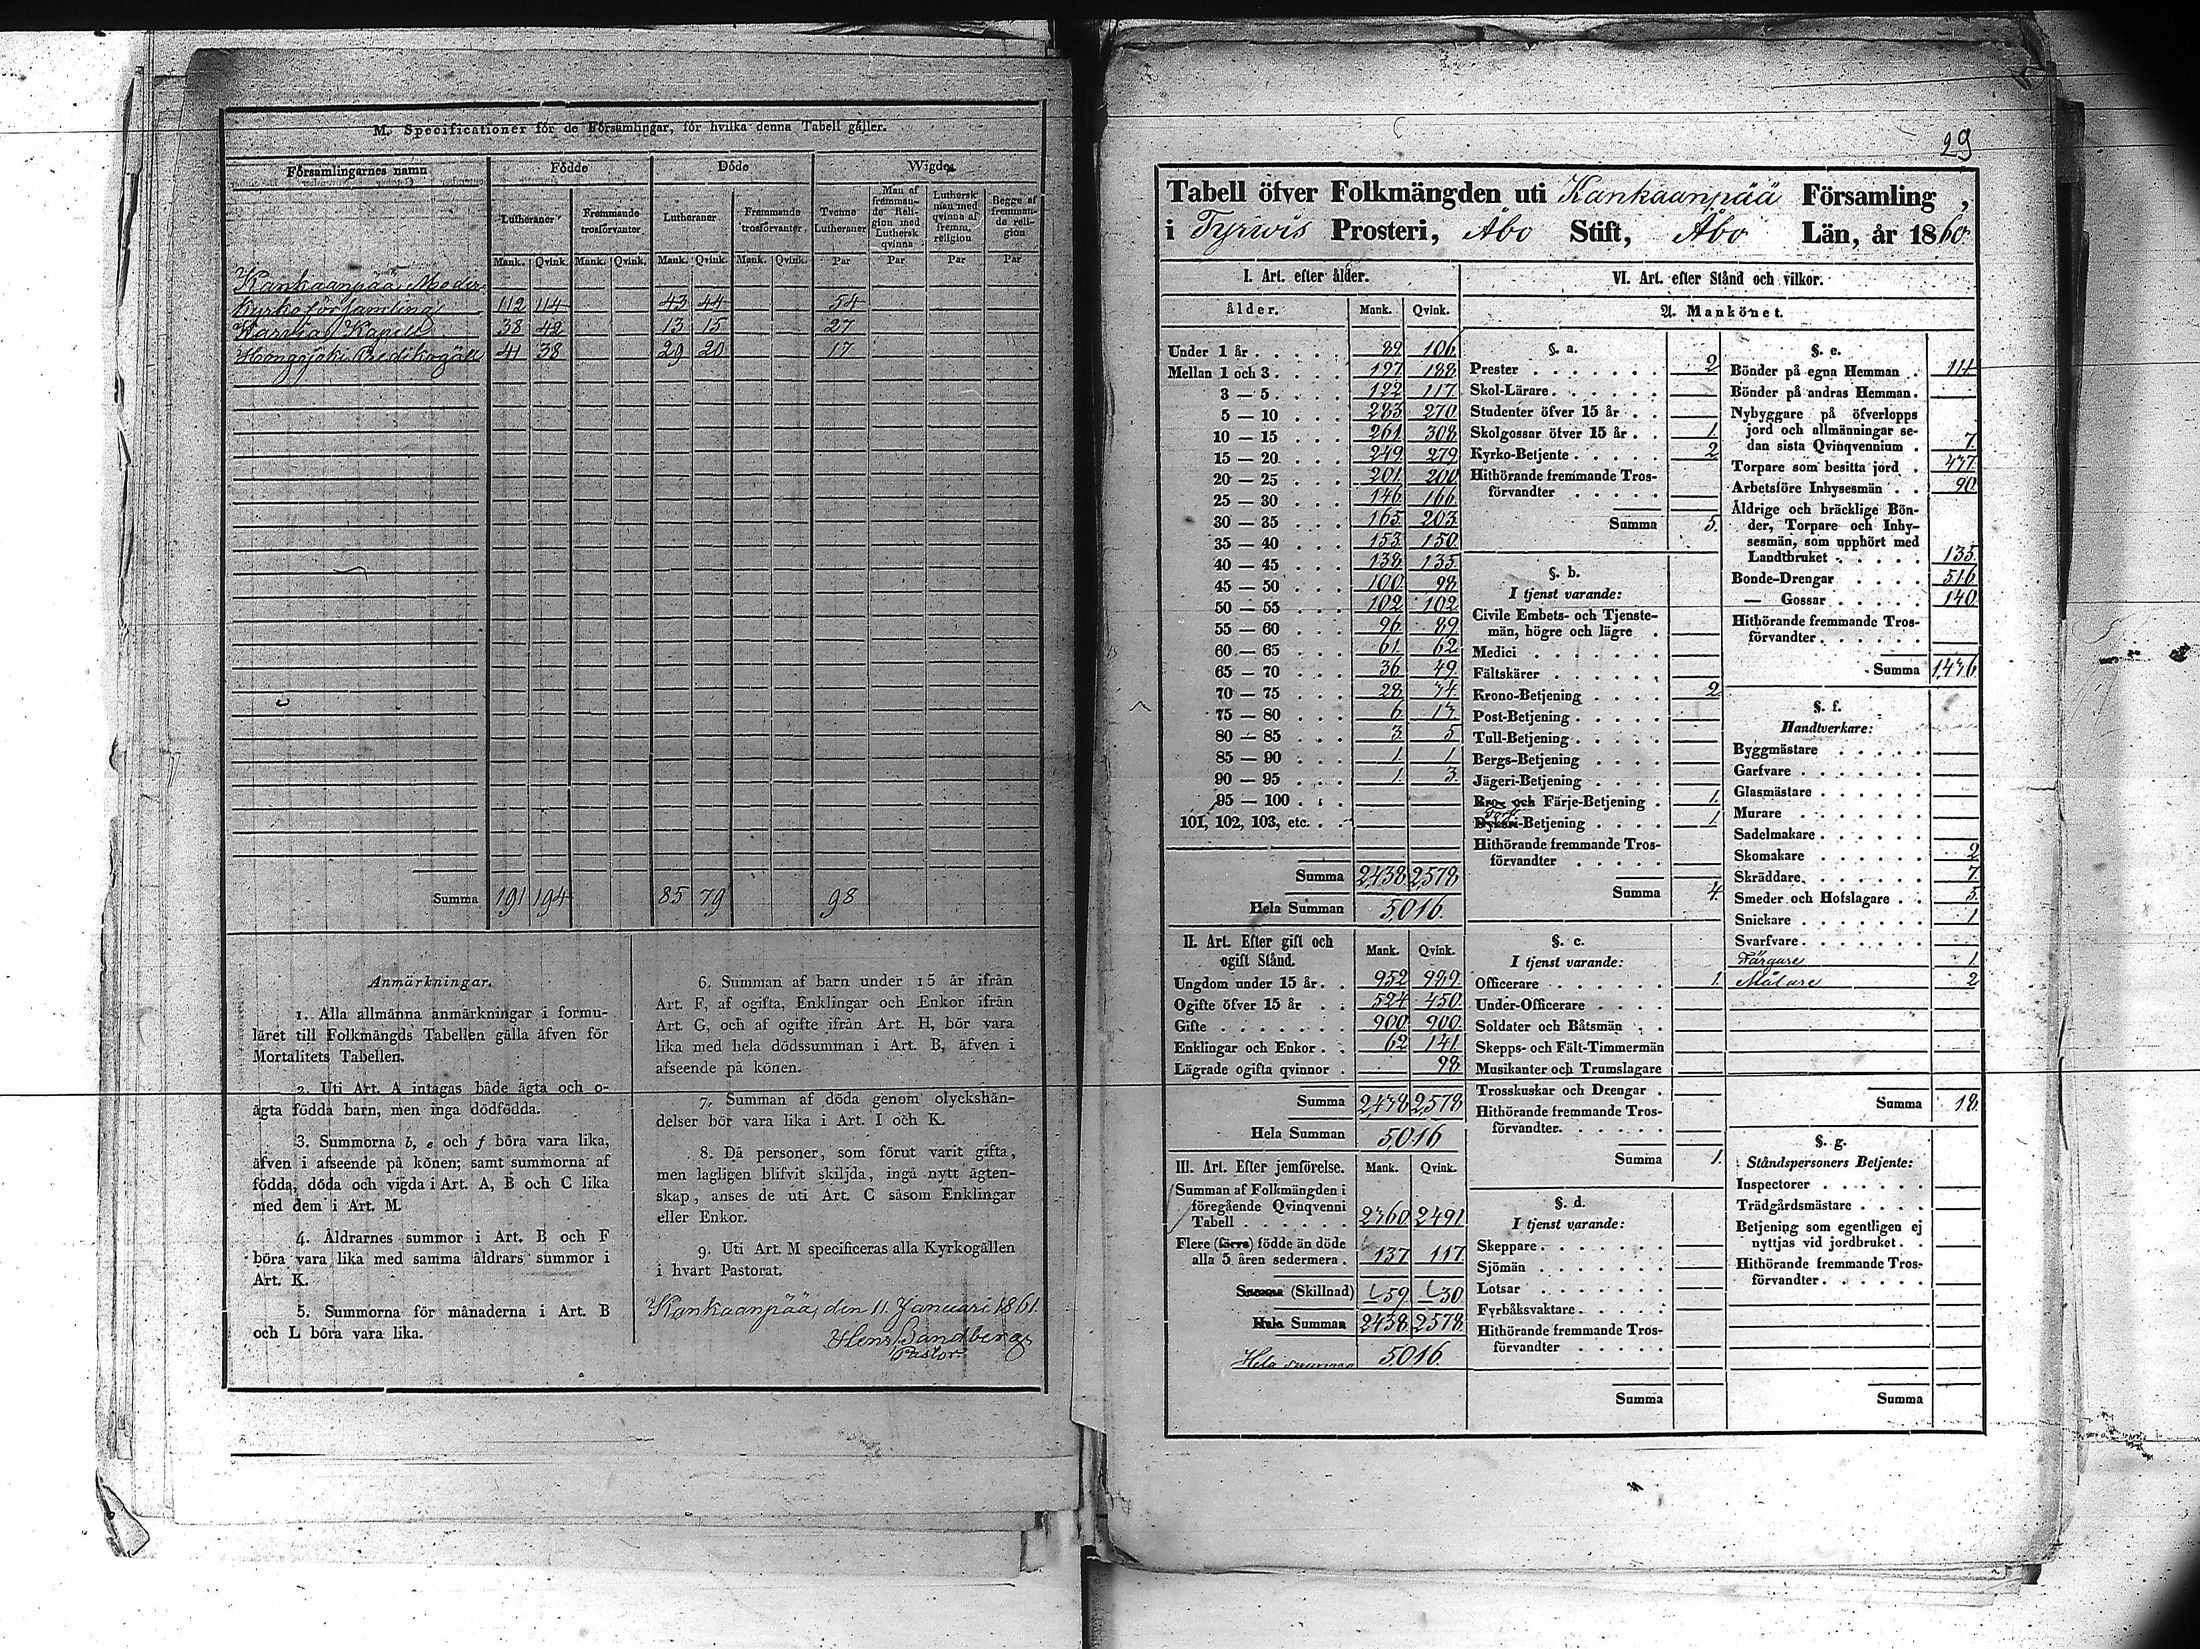 M. Specificationer för de Församlingar, för hvilka denna Tabell gäller.
Församlingarnes namn Födde Döde Wigde
Lutheraner Fremmande trosförvanter Lutheraner Fremmande trosförvanter Tvenne Lutheraner Man af fremmande Religion med Luthersk qvinna Luthersk man med qvinna af fremm. religion Begge af fremmande religion
Mank. Qvink. Mank. Qvink. Mank. Qvink. Mank. Qvink. Par Par Par Par
Kankaanpää Moder
kyrko församling 112 114 43 44 54
Kapell 38 42 13 15 27
Hongojoki Predikogäll 41 38 29 20 17
Summa 191 194 85 79 98
Anmärkningar.
1. Alla allmänna anmärkningar i formu-
läret till Folkmängds Tabellen gälla äfven för
Mortalitets Tabellen.
2. Uti Art. A intagas både ägta och o-
ägta födda barn, men inga dödfödda.
3. Summorna b, e och f böra vara lika,
äfven i afseende på könen; samt summorna af
födda, döda och vigda i Art. A, B och C lika
med dem i Art. M.
4. Åldrarnes summor i Art. B och F
böra vara lika med samma åldrars summor i
Art. K.
5. Summorna för månaderna i Art. B
och L böra vara lika.
6. Summan af barn under 15 år ifrån
Art. F, af ogifta, Enklingar och Enkor ifrån
Art. G, och af ogifte ifrån Art. H, bör vara
lika med hela dödssumman i Art. B, äfven i
afseende på könen.
7. Summan af döda genom olyckshän-
delser bör vara lika i Art. I och K.
8. Då personer, som förut varit gifta,
men lagligen blifvit skiljda, ingå nytt ägten-
skap, anses de uti Art. C såsom Enklingar
eller Enkor.
9. Uti Art. M specificeras alla Kyrkogällen
i hvart Pastorat.
Kankaanpää den 11 Januari 1861.
Henr. Sandberg
Pastor.
29
Tabell öfver Folkmängden uti Kankaanpää Församling,
i Tyrwis Prosteri, Åbo Stift, Åbo Län, år 1860.
I. Art. efter ålder.
ålder. Mank. Qvink.
Under 1 år 89 106
Mellan 1 och 3 197 188
3 — 5 122 117
5 — 10 283 270
10 — 15 261 308
15 — 20 249 279
20 — 25 201 200
25 — 30 146 166
30 — 35 165 203
35 — 40 153 150
40 — 45 138 135
45 — 50 100 98
50 — 55 102 102
55 — 60 96 89
60 — 65 61 62
65 — 70 36 49
70 — 75 28 34
75 — 80 6 13
80 — 85 3 5
85 — 90 1 1
90 — 95 1 3
95 — 100
101, 102, 103, etc.
Summa 2438 2578
Hela Summan 5016.
II. Art. Efter gift och Mank. Qvink.
ogift Stånd.
Ungdom under 15 år 952 989
Ogifte öfver 15 år 524 450
Gifte 900 900
Enklingar och Enkor 62 141
Lägrade ogifta qvinnor 98
Summa 2438 2578
Hela Summan 5016
III. Art. Efter jemförelse. Mank. Qvink.
Summan af Folkmängden i
föregående Qvinqvenni
Tabell 2360 2491
Flere (färre) födde än döde
alla 5 åren sedermera 137 117
Summa (Skillnad) 59 30
Hela Summan 2438 2578
Hela summan 5016.
VI. Art. efter Stånd och vilkor.
A. Mankönet.
§. a.
Prester 2
Skol-Lärare
Studenter öfver 15 år
Skolgossar öfver 15 år 1
Kyrko-Betjente 2
Hithörande fremmande Tros-
förvandter
Summa 5.
§. b.
I tjenst varande:
Civile Embets- och Tjenste-
män, högre och lägre
Medici
Fältskärer
Krono-Betjening 2
Post-Betjening
Tull-Betjening
Bergs-Betjening
Jägeri-Betjening
Bro- och Färje-Betjening 1.
Dykeri-Betjening 1.
Hithörande fremmande Tros-
förvandter
Summa 4.
§. c.
I tjenst varande:
Officerare 1.
Under-Officerare
Soldater och Båtsmän
Skepps- och Fält-Timmermän
Musikanter och Trumslagare
Trosskuskar och Drengar
Hithörande fremmande Tros-
förvandter
Summa 1.
§. d.
I tjenst varande:
Skeppare
Sjömän
Lotsar
Fyrbåksvaktare
Hithörande fremmande Tros-
förvandter
Summa
§. e.
Bönder på egna Hemman 114
Bönder på andras Hemman
Nybyggare på öfverlopps
jord och allmänningar se-
dan sista Qvinqvennium 7.
Torpare som besitta jord 477
Arbetsföre Inhysesmän 90
Åldrige och bräcklige Bön-
der, Torpare och Inhy-
sesmän, som upphört med
Landtbruket 135
Bonde-Drengar 516
— Gossar 140
Hithörande fremmande Tros-
förvandter
Summa 1476
§. f.
Handtverkare:
Byggmästare
Garfvare
Glasmästare
Murare
Sadelmakare
Skomakare 2
Skräddare 7.
Smeder och Hofslagare 5.
Snickare 1
Svarfvare
Färgare 1
Målare 2
Summa 18
§. g.
Ståndspersoners Betjente:
Inspectorer
Trädgårdsmästare
Betjening som egentligen ej
nyttjas vid jordbruket
Hithörande fremmande Tros-
förvandter
Summa